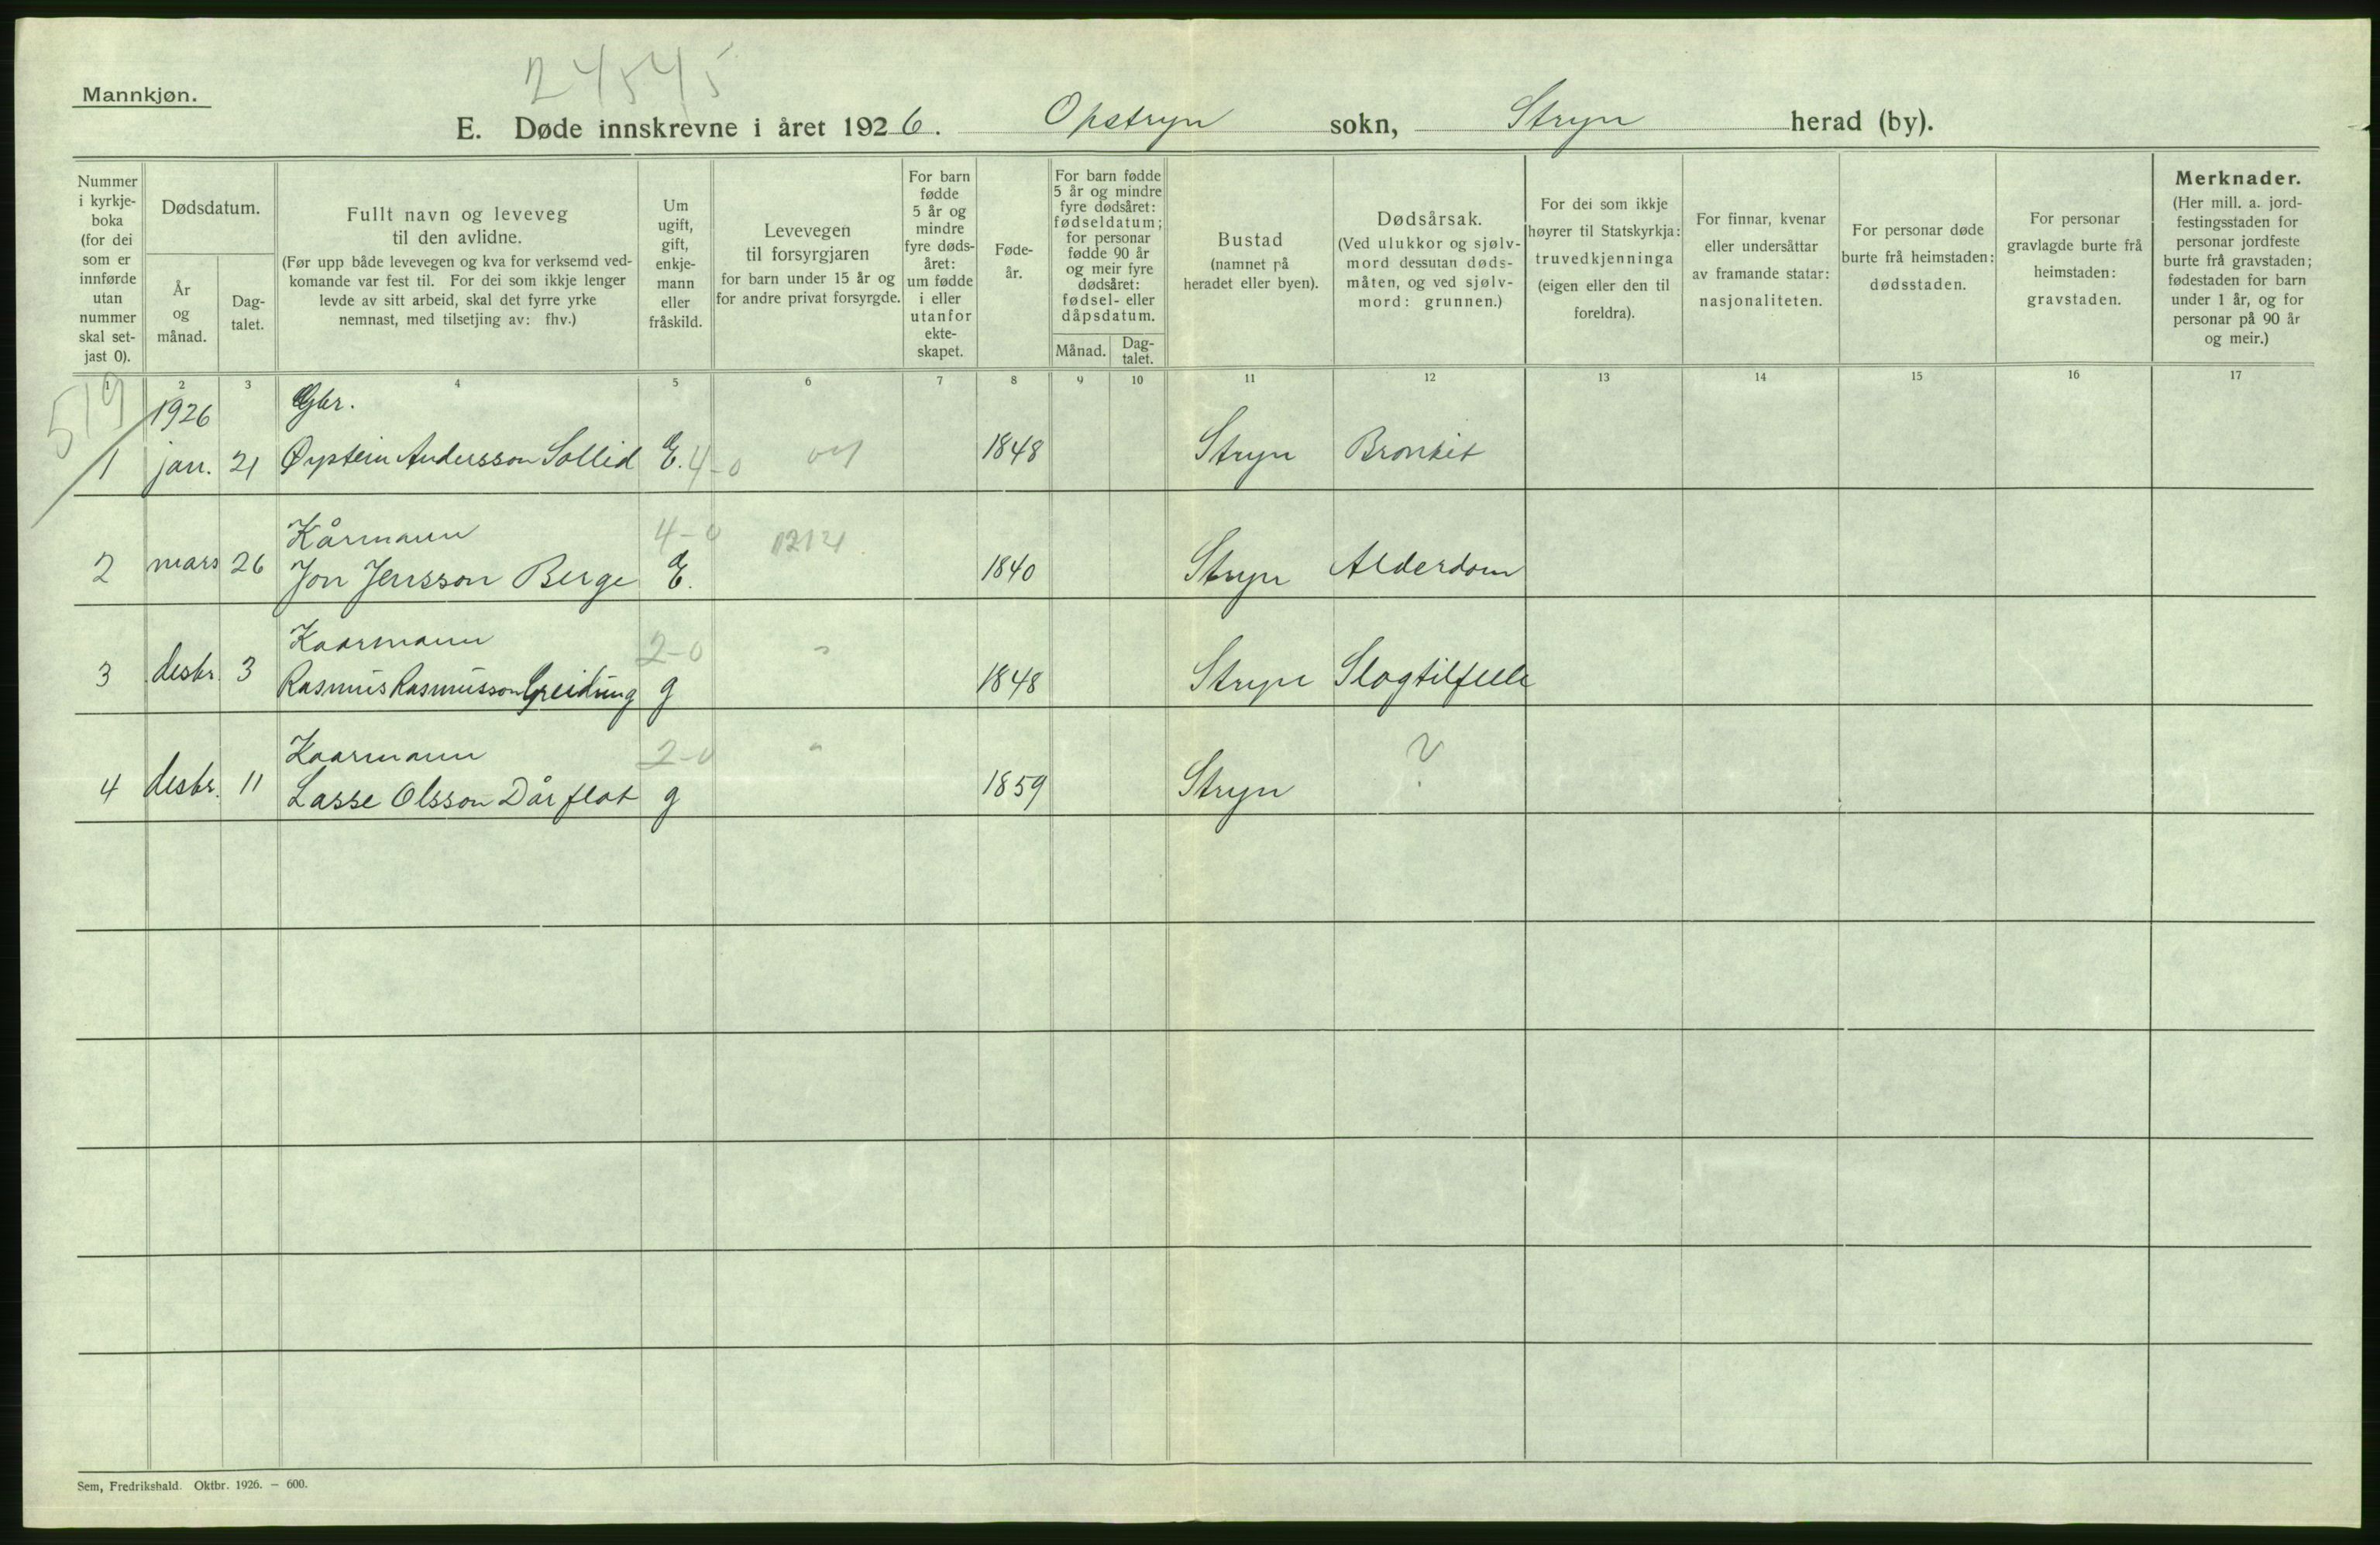 24545
Mannkjøn.
E. Døde innskrevne i året 1926. Opstryn sokn, Stryn herad (by).
Nummer i kyrkje-boka (for dei som er innførde utan nummer skal set-jast 0).
Dødsdatum.
År og månad.
Dag-talet.
Fullt navn og leveveg til den avlidne.
(Før upp både levevegen og kva for verksemd ved-komande var fest til. For dei som ikkje lenger levde av sitt arbeid, skal det fyrre yrke nemnast, med tilsetjing av: fhv.)
Um ugift, gift, enkje-mann eller fråskild.
Levevegen til forsyrgjaren for barn under 15 år og for andre privat forsyrgde.
For barn fødde 5 år og mindre fyre døds-året: um fødde i eller utanfor ekte-skapet.
Føde-år.
For barn fødde 5 år og mindre fyre dødsåret: fødseldatum; for personar fødde 90 år og meir fyre dødsåret: fødsel- eller dåpsdatum.
Månad.
Dag-talet.
Bustad (namnet på heradet eller byen).
Dødsårsak.
(Ved ulukkor og sjølv-mord dessutan døds-måten, og ved sjølv-mord: grunnen.)
For dei som ikkje høyrer til Statskyrkja: truvedkjenninga (eigen eller den til foreldra).
For finnar, kvenar eller undersåttar av framande statar: nasjonaliteten.
For personar døde burte frå heimstaden: dødsstaden.
For personar gravlagde burte frå heimstaden: gravstaden.
Merknader.
(Her mill. a. jord-festingsstaden for personar jordfeste burte frå gravstaden; fødestaden for barn under 1 år, og for personar på 90 år og meir.)
1 2 3 4 5 6 7 8 9 10 11 12 13 14 15 16 17
519
1926 Gbr.
1 jan. 21 Øystein Andersson Sollid E. 4-0 1848 Stryn Bronkit
Kårmann 4-0
2 mars 26 Jon Jensson Berge E. 1840 Stryn Alderdom
Kaarmann 2-0 "
3 desbr. 3 Rasmus Rasmusson Greidung g 1848 Stryn Slagtilfelle
Kaarmann 2-0 " ?
4 desbr. 11 Lasse Olsson Dårflot g 1859 Stryn
Sem, Fredrikshald. Oktbr. 1926. — 600.